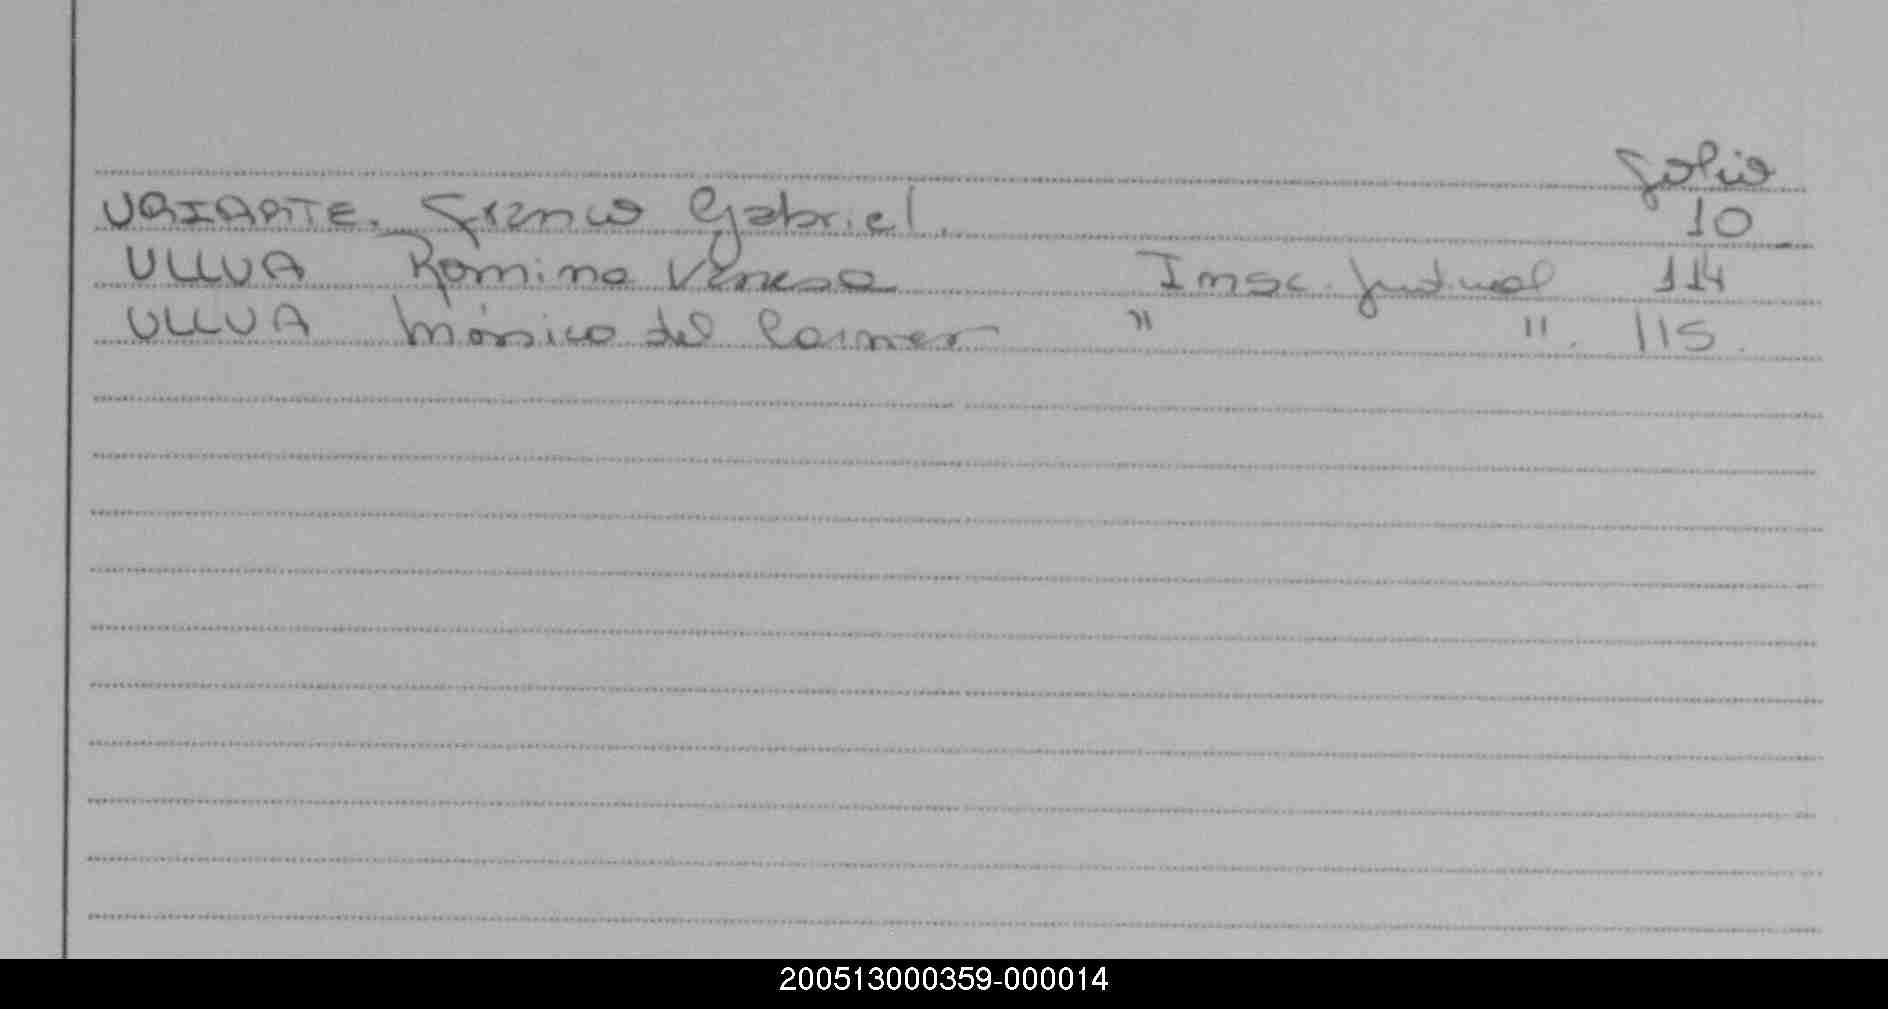 Folio
URIARTE. Franco Gabriel. 10
ULLUA Romina Vanesa Insc. Judicial 114
ULLUA Mónica del Carmen " ". 115.
200513000359-000014